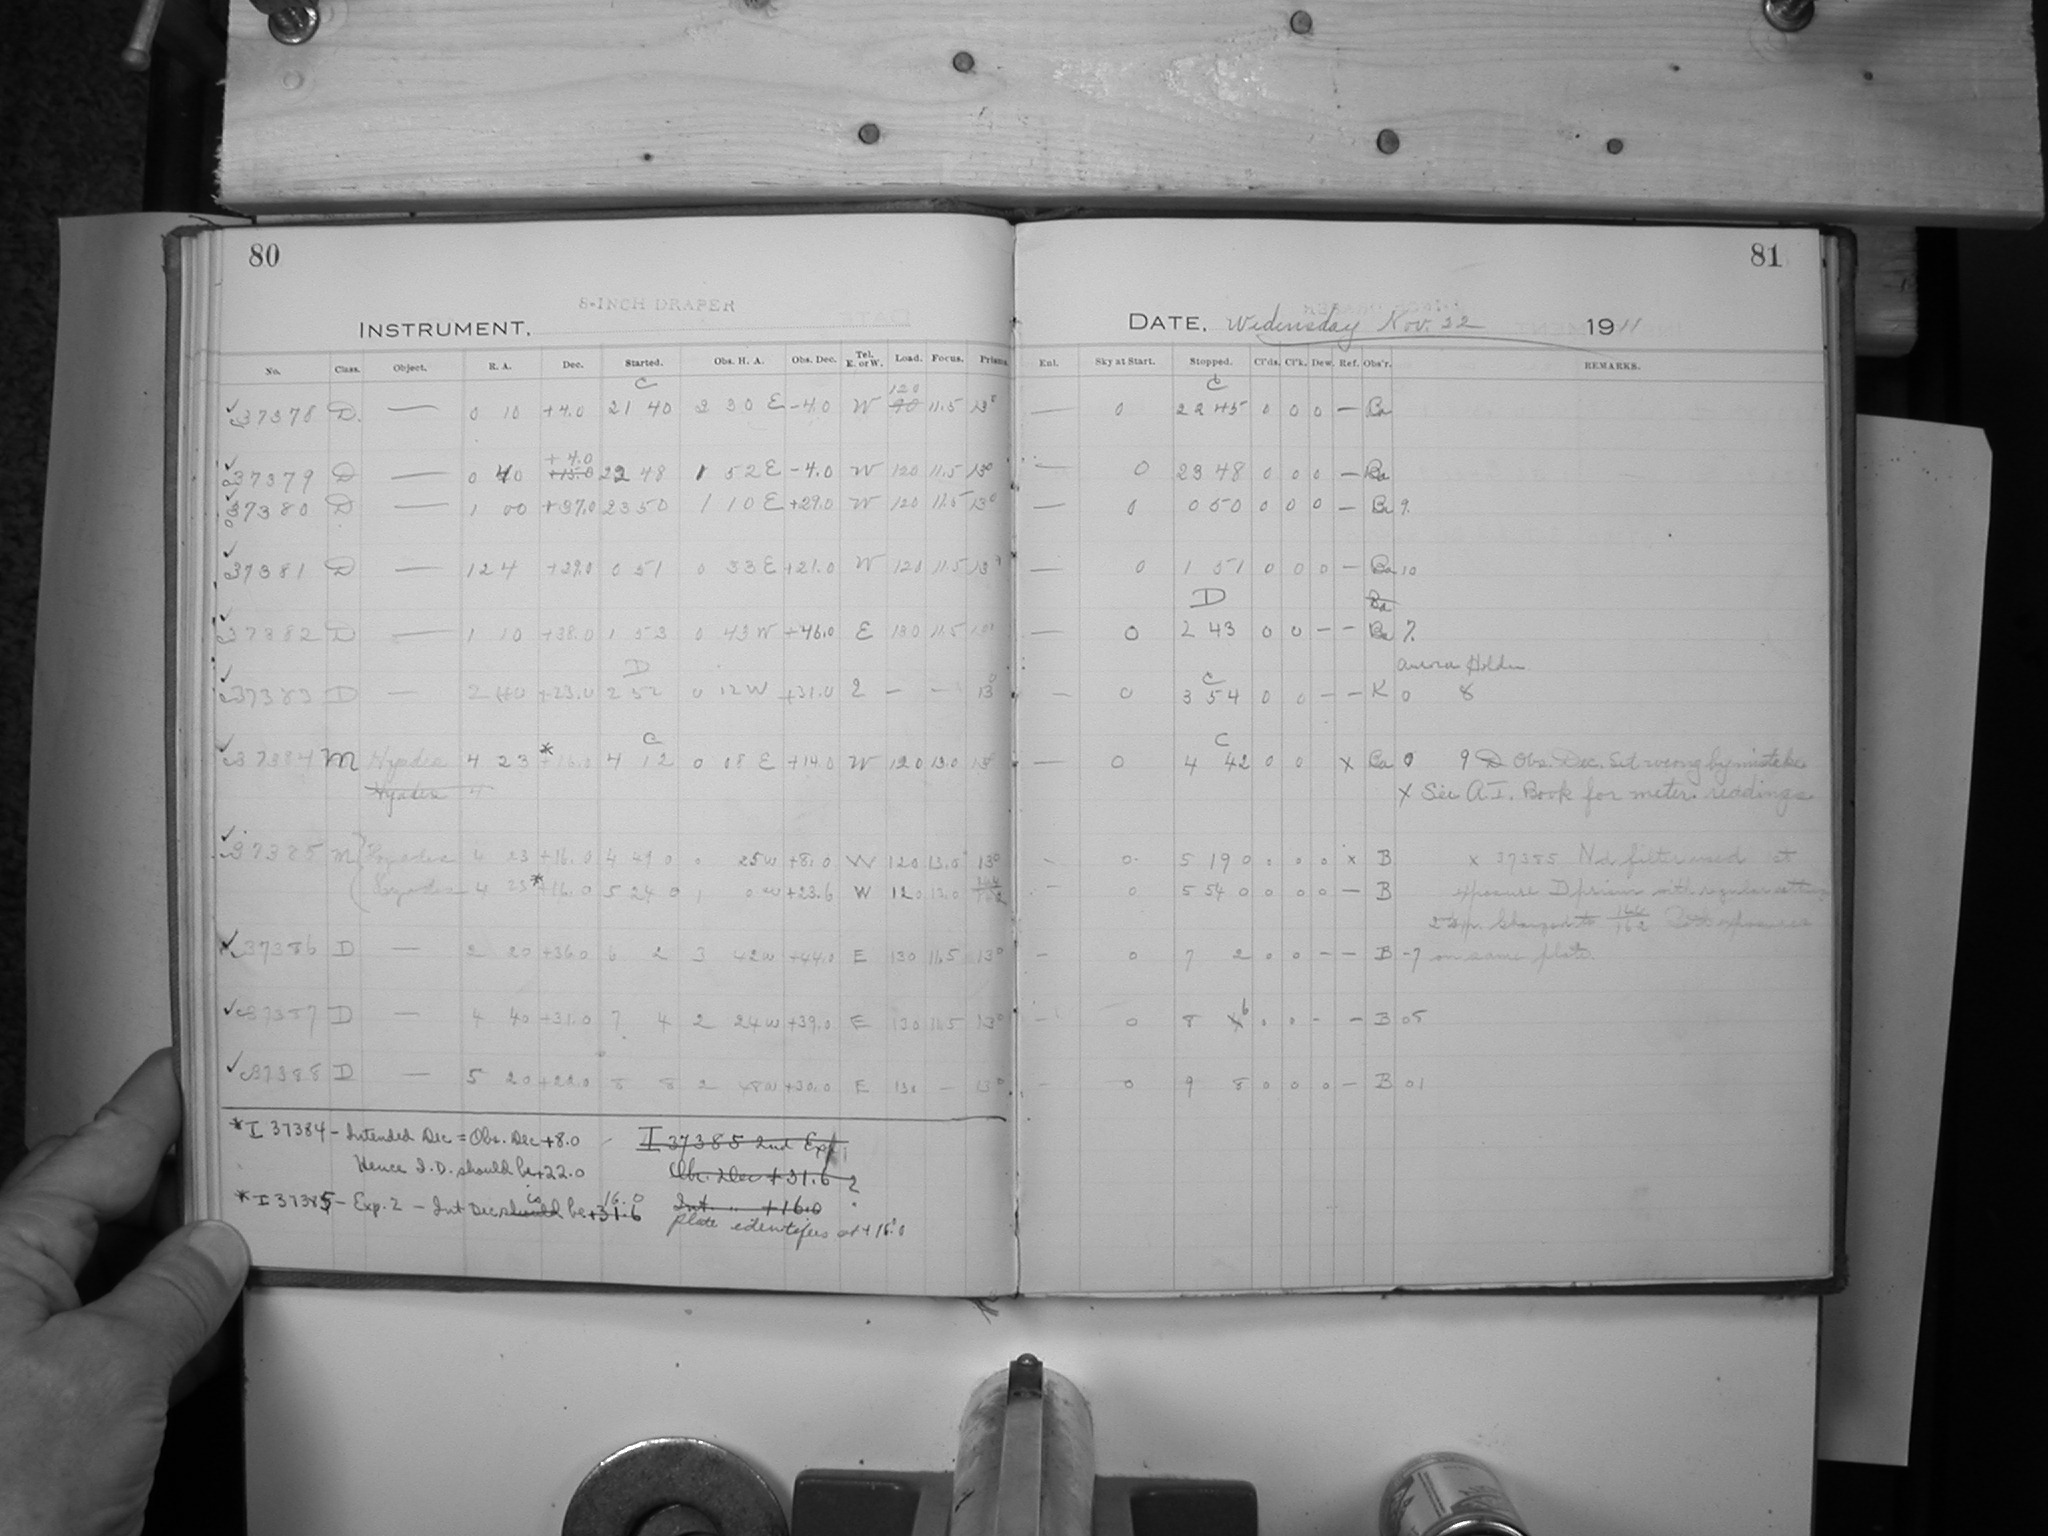 80
8-INCH DRAPER
INSTRUMENT.
No. Class. Object. R. A. Dec. Started. Obs. H. A. Obs. Dec. Tel. E. or W. Load. Focus. Prism.
C 120
37378 D. — 0 10 +4.0 21 40 2 30 E -4.0 W 90 11.5 13°
+4.0
37379 D — 0 40 +15.0 22 48 1 52 E -4.0 W 120 11.5 13°
37380 D — 1 00 +37.0 23 50 1 10 E +29.0 W 120 11.5 13°
37381 D — 1 24 +29.0 0 51 0 33 E +21.0 W 120 11.5 13°
37382 D — 1 10 +38.0 1 53 0 43 W +46.0 E 130 11.5 13°
D
37383 D — 2 40 +23.0 2 52 0 12 W +31.0 2 — — 13°
C
37384 M Hyades 4 23 *+16.0 4 12 0 08 E +14.0 W 120 13.0 13°
Hyades 4
37385 M Hyades 4 23 +16.0 4 49 0 0 25 W +8.0 W 120 13.0 13°
Hyades 4 23 *+16.0 5 24 0 1 0 W +23.6 W 120 13.0
37386 D — 2 20 +36.0 6 2 3 42 W +44.0 E 130 11.5 13°
37387 D — 4 40 +31.0 7 4 2 24 W +39.0 E 130 11.5 13°
37388 D — 5 20 +22.0 8 8 2 48 W +30.0 E 130 — 13°
* I 37384 - Intended Dec = Obs. Dec +8.0
Hence I.D. should be +22.0
* I 37385 - Exp. 2 - Int Dec should is be +31.6 16.0
I 37385 2nd Exp.
Obs. Dec +31.6 ?
Int. " +16.0
plate identifies at +16.0
81
DATE. Wednesday Nov. 22 1911
Enl. Sky at Start. Stopped. Cl'ds. Cl'k. Dew. Ref. Obs'r. REMARKS.
C
— 0 22 45 0 0 0 — Ba
— 0 23 48 0 0 0 — Ba
— 0 0 50 0 0 0 — Ba 9.
— 0 1 51 0 0 0 — Ba 10
D Ba
— 0 2 43 0 0 — — Ba 7.
aurora Holden
C
— 0 3 54 0 0 — — K 0 8
C
— 0 4 42 0 0 x Ca 0 9 D Obs. Dec. Set wrong by mistake
x See A.I. Book for meter. readings
- 0 5 19 0 0 0 0 x B x 37385 Nd filter used 1st
- 0 5 54 0 0 0 0 — B exposure D prism with regular setting
2d exp. changed to 144/162 Both exposures
- 0 7 2 0 0 — — B -7 on same plate.
- 0 8 6 0 0 - — B 05
- 0 9 8 0 0 0 — B 01